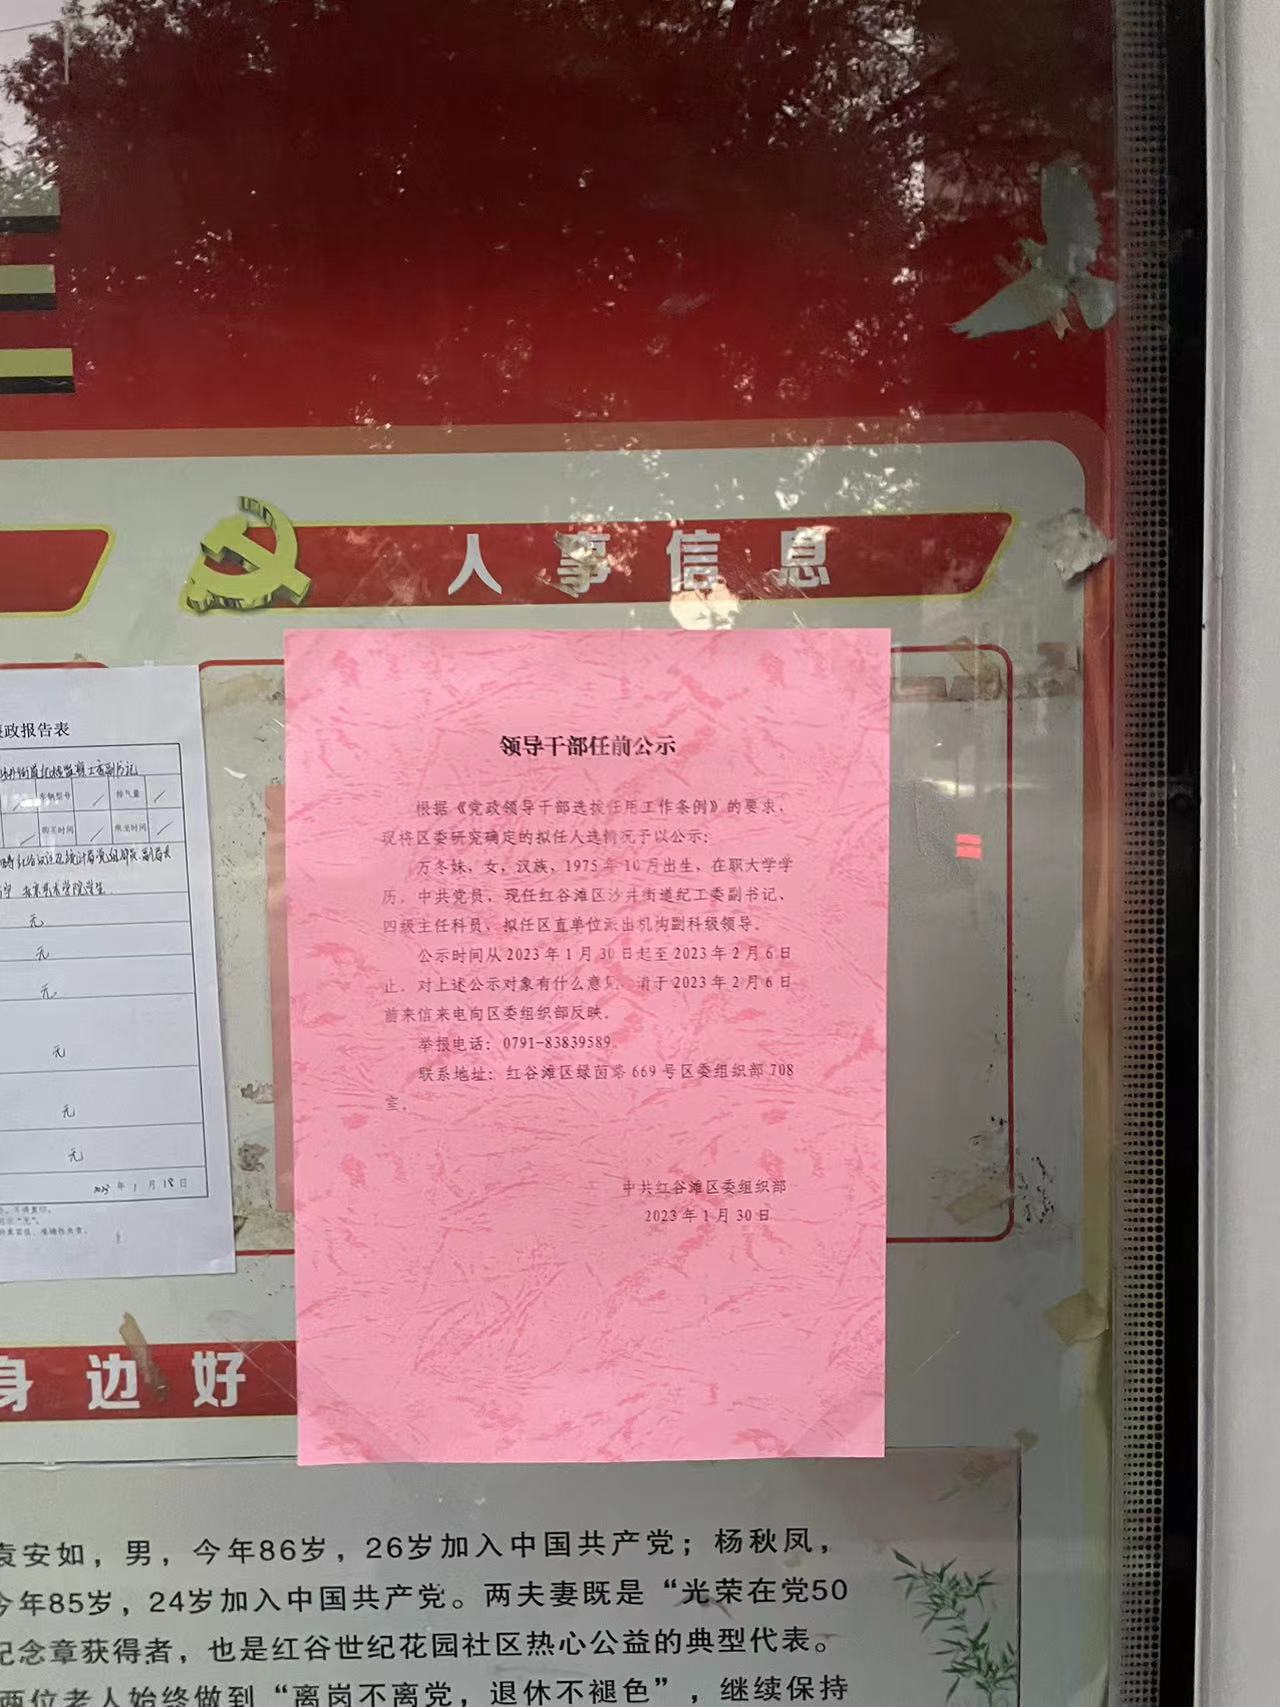 人事信息
领导干部任前公示
根据《党政领导干部选拔任用工作条例》的要求，
现将区委研究确定的拟任人选情况予以公示：
万冬妹，女，汉族，1975年10月出生，在职大学学
历，中共党员，现任红谷滩区沙井街道纪工委副书记、
四级主任科员，拟任区直单位派出机构副科级领导。
公示时间从2023年1月30日起至2023年2月6日
止。对上述公示对象有什么意见，请于2023年2月6日
前来信来电向区委组织部反映。
举报电话：0791-83839589
联系地址：红谷滩区绿茵路669号区委组织部708
室。
中共红谷滩区委组织部
2023年1月30日
政报告表
车辆型号
排气量
购买时间
元
元
元
元
元
元
2023年1月18日
身边好
袁安如，男，今年86岁，26岁加入中国共产党；杨秋凤，
今年85岁，24岁加入中国共产党。两夫妻既是“光荣在党50
纪念章获得者，也是红谷世纪花园社区热心公益的典型代表。
两位老人始终做到“离岗不离党，退休不褪色”，继续保持